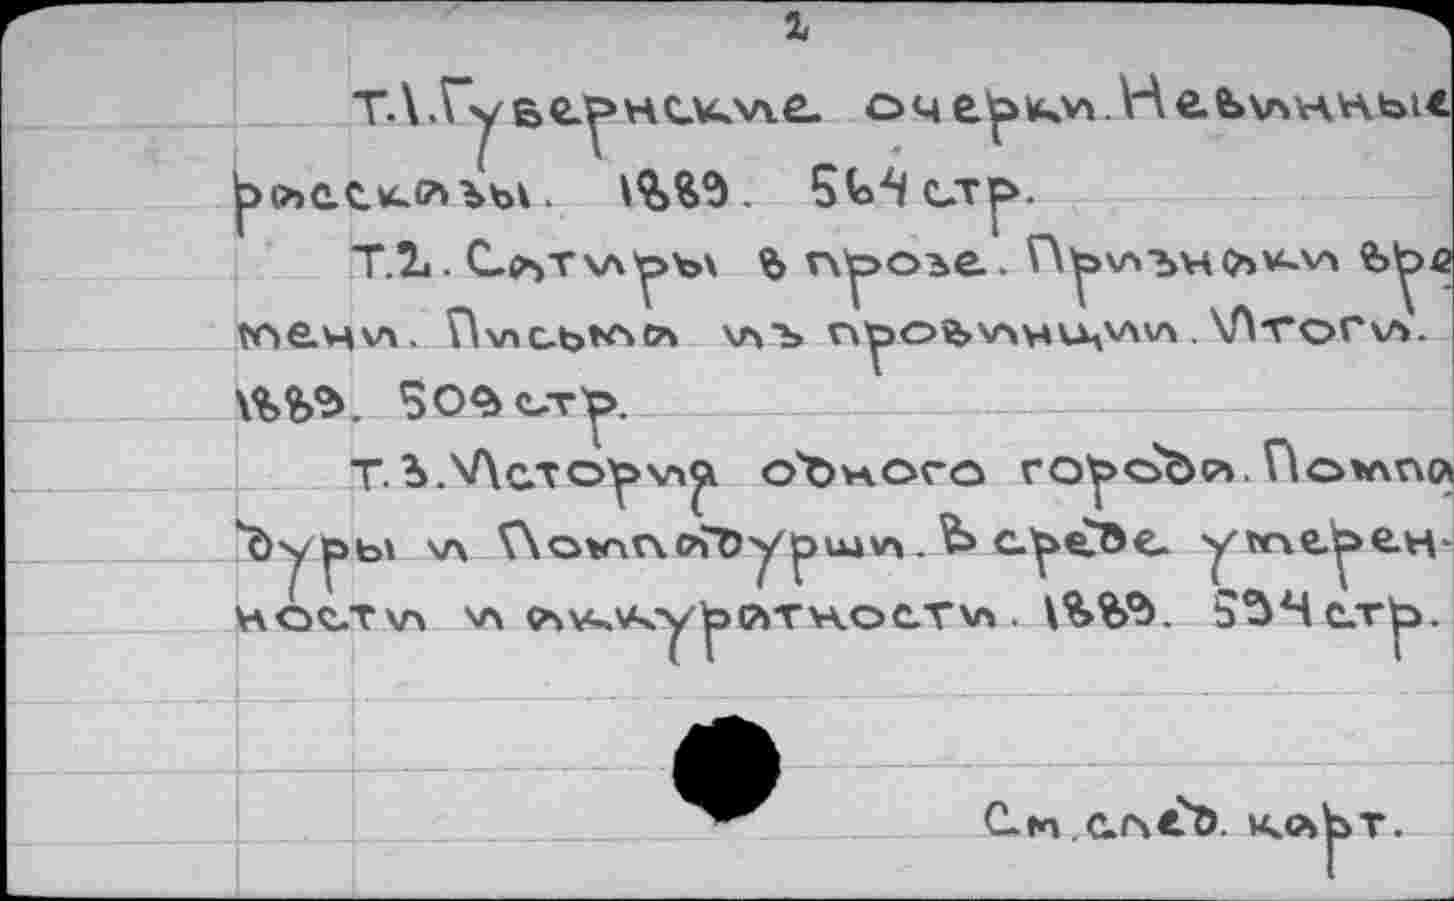 2
Т.1.Губернские очерки.Невинные
рассказы. 1889. 564 стр.
Т.2. Сатиры в прозе. Признаки вре
мени. Письма из провинции. Итоги.
1889. 509 стр.
Т.3.История одного города. Помпа
дуры и Помпадурши. В среде умерен-
ности и аккуратности. 1889. 594 стр.
См.след. карт.